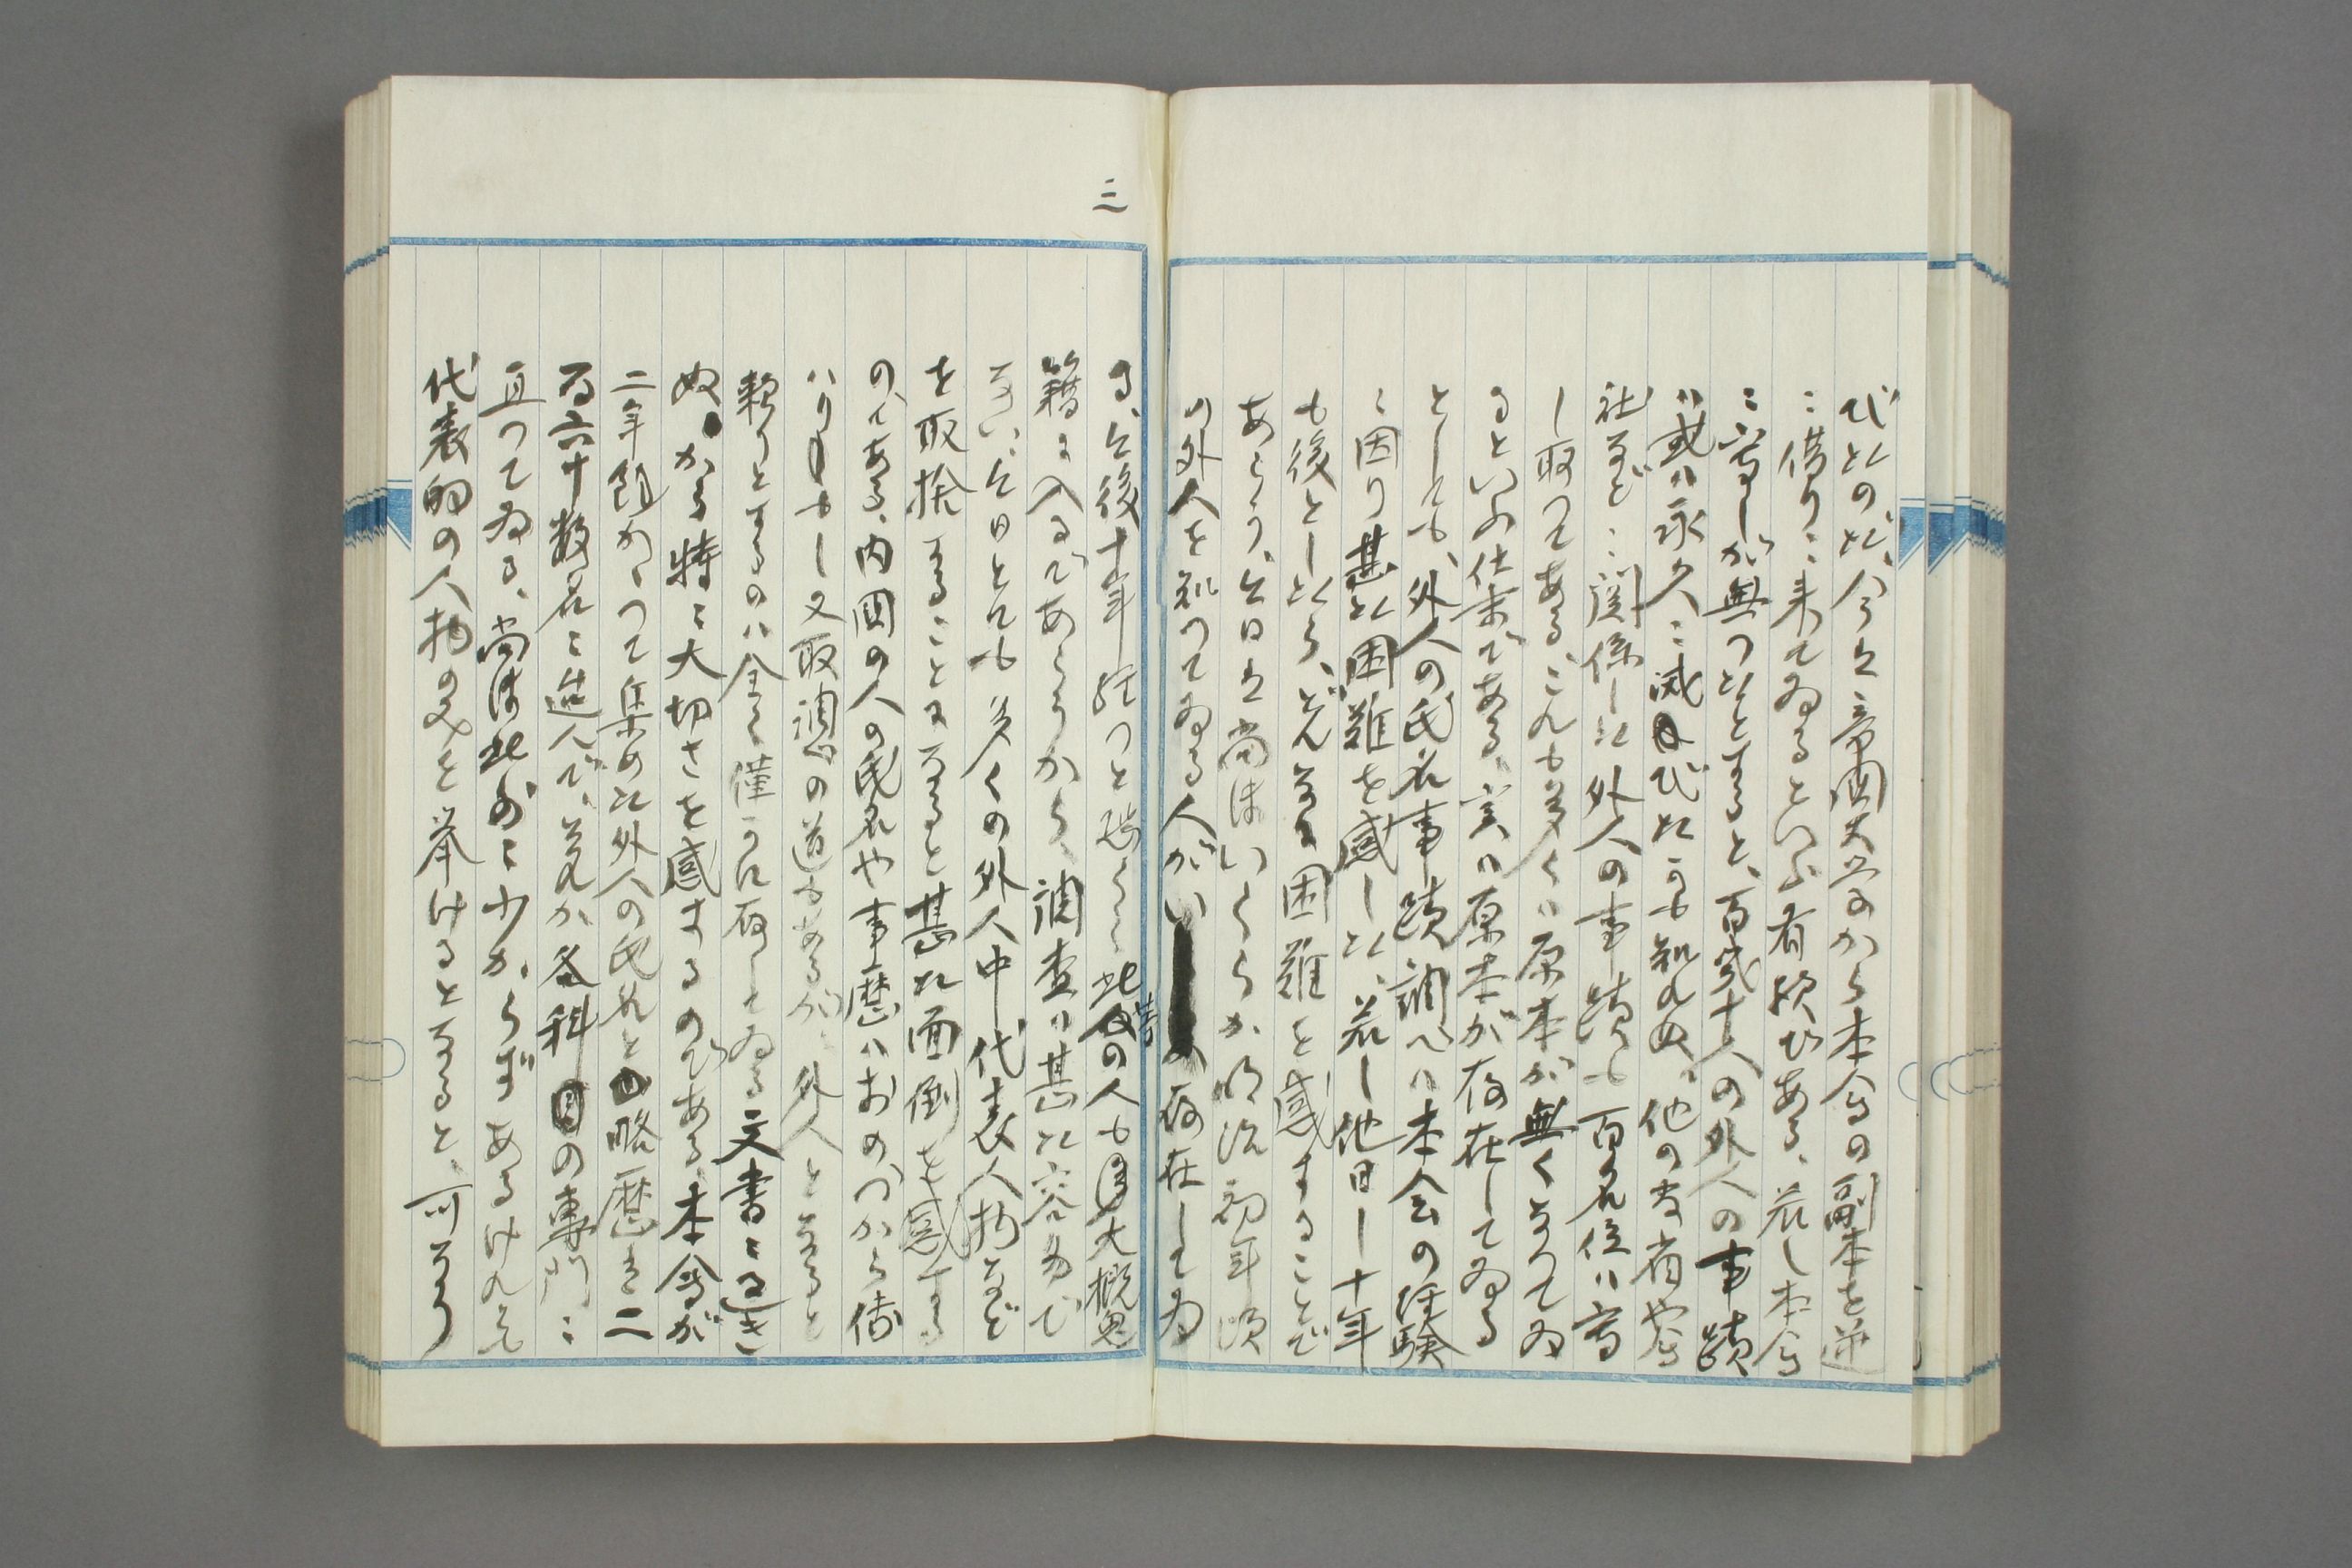 びたのだ、今は帝国大学から本会の副本を逆
に借りに来てゐるといふ有様である、若し本会
に写しが無つたとすると、百幾十人の外人の事蹟
は或は永久に滅びたかも知れぬ、他の官省や会
社などに関係した外人の事蹟も百名位は写
し取つてある、これも多くは原本が無くなつてゐ
るといふ仕末である、実は原本が存在してゐる
としても、外人の氏名事蹟調べは本会の経験
に因り甚た困難を感した、若し他日十年
も後としたら、どんなに困難を感することで
あらう、今日は尚ほいくらか明治初年頃
の外人を知つてゐる人がい存在してゐ
三
る、今後十年経つと恐らく此等の人も大概鬼
籍に入るであらうから、調査は甚た容易で
ない、今日とても多くの外人中代表人物など
を取捨することになると甚た面倒を感する
のである、内国の人の氏名や事歴はおのづから伝
はりもし又取調の道もあるが、外人となると
頼りとするのは全く僅かに存してゐる文書に過き
ぬ。から特に大切さを感するのである、本会が
二年餘かゝつて集めた外人の氏名と略歴は二
百六十数名に達んで、それが各科目の専門に
亘つてゐる、尚ほ此外に少からずあるけれど
代表的の人物のみを挙けるとなると、可なり